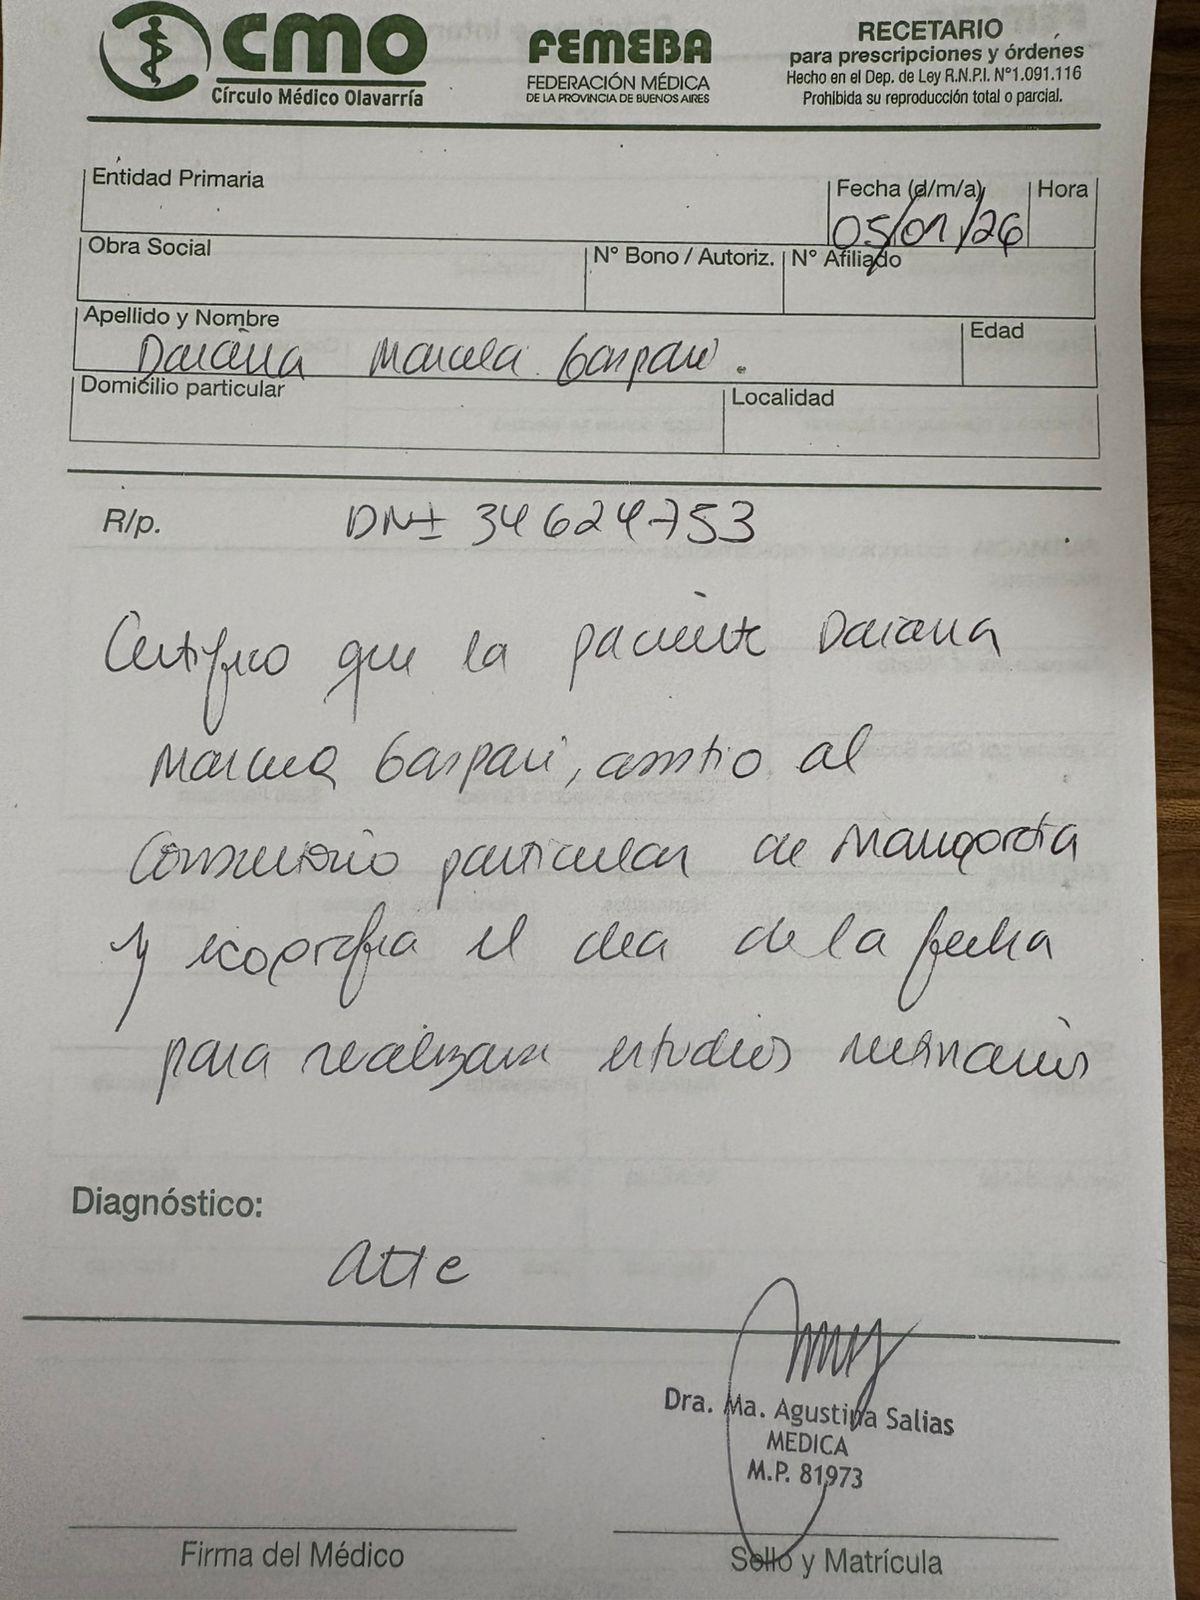 CMO
Círculo Médico Olavarría
FEMEBA
FEDERACIÓN MÉDICA
DE LA PROVINCIA DE BUENOS AIRES
RECETARIO
para prescripciones y órdenes
Hecho en el Dep. de Ley R.N.P.I. N°1.091.116
Prohibida su reproducción total o parcial.
Entidad Primaria
Fecha (d/m/a) Hora
05/01/26
Obra Social N° Bono / Autoriz. N° Afiliado
Apellido y Nombre Edad
Daiana Marcela Gaspari.
Domicilio particular Localidad
R/p. DNI 34624753
Certifico que la paciente Daiana
Marcela Gaspari, asistio al
Consultorio particular de
y ecografia el dia de la fecha
para realizarse estudios necesarios
Diagnóstico:
Atte
Dra. Ma. Agustina Salias
MEDICA
M.P. 81973
Firma del Médico Sello y Matrícula